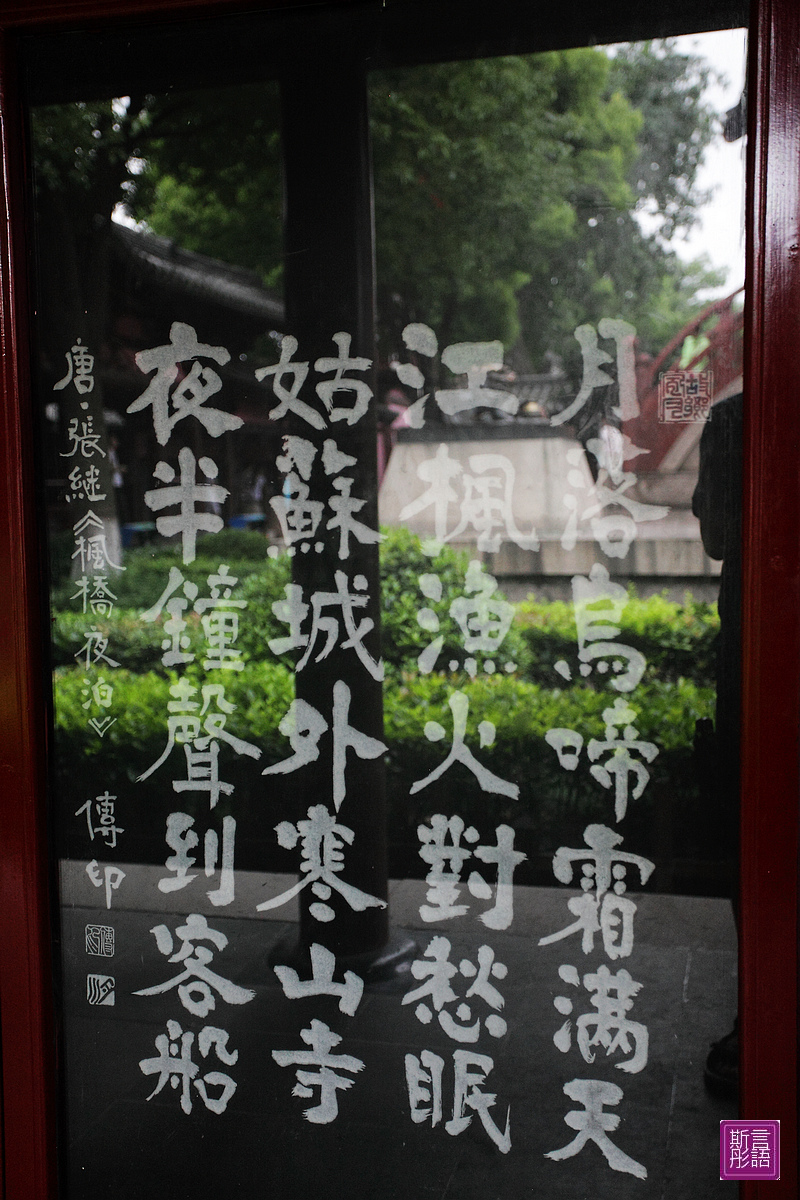 月落烏啼霜满天
江楓漁火對愁眠
姑蘇城外寒山寺
夜半鐘聲到客船
唐·張継《楓橋夜泊》
傳印
言語
斯彤